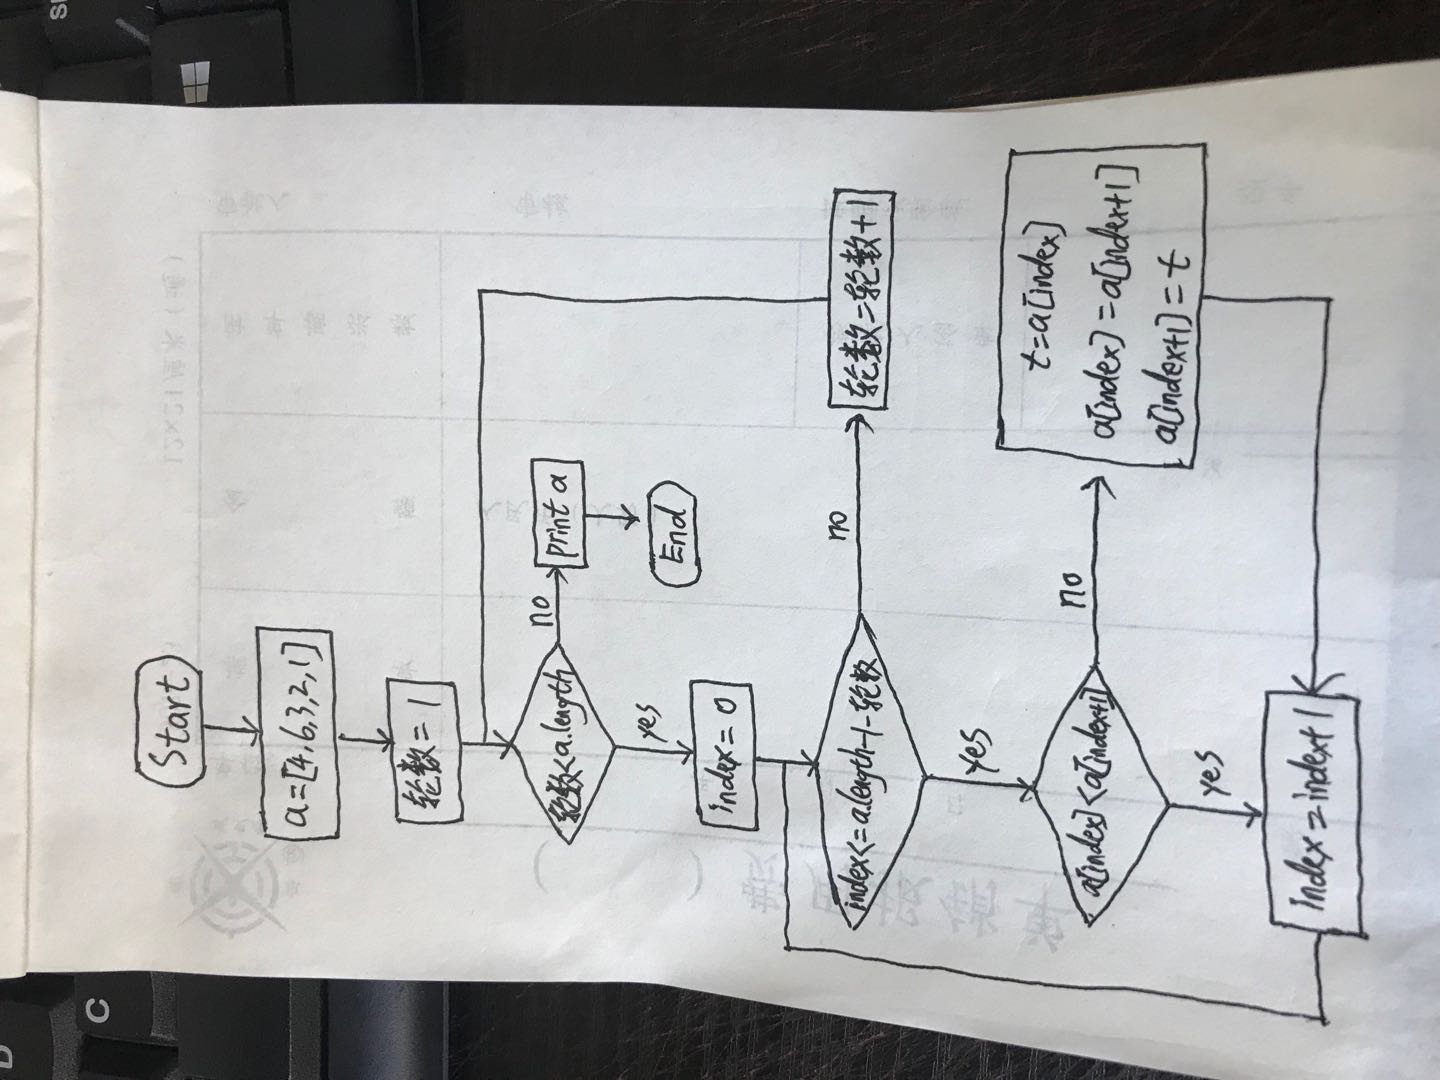 D
C
Start
a=[4,6,3,2,1]
轮数=1
轮数<a.length
no
print a
yes
End
index=0
index<=a.length-1-轮数
no
轮数=轮数+1
yes
a[index]<a[index+1]
no
t=a[index]
a[index]=a[index+1]
a[index+1]=t
yes
index=index+1